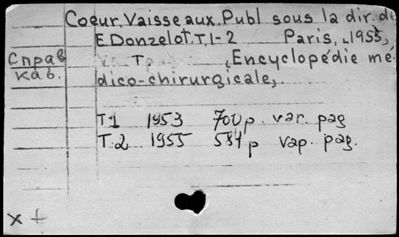 Coeur. Vaisseaux. Publ sous la dir. de
E. Donzelot. T. 1-2 Paris, 1955,
Справ Encyclopédie mé-
каб. dico-chirurgicale,
T.1 1953 700 p. var. pag
T.2 1955 584 p var. pag.
x +